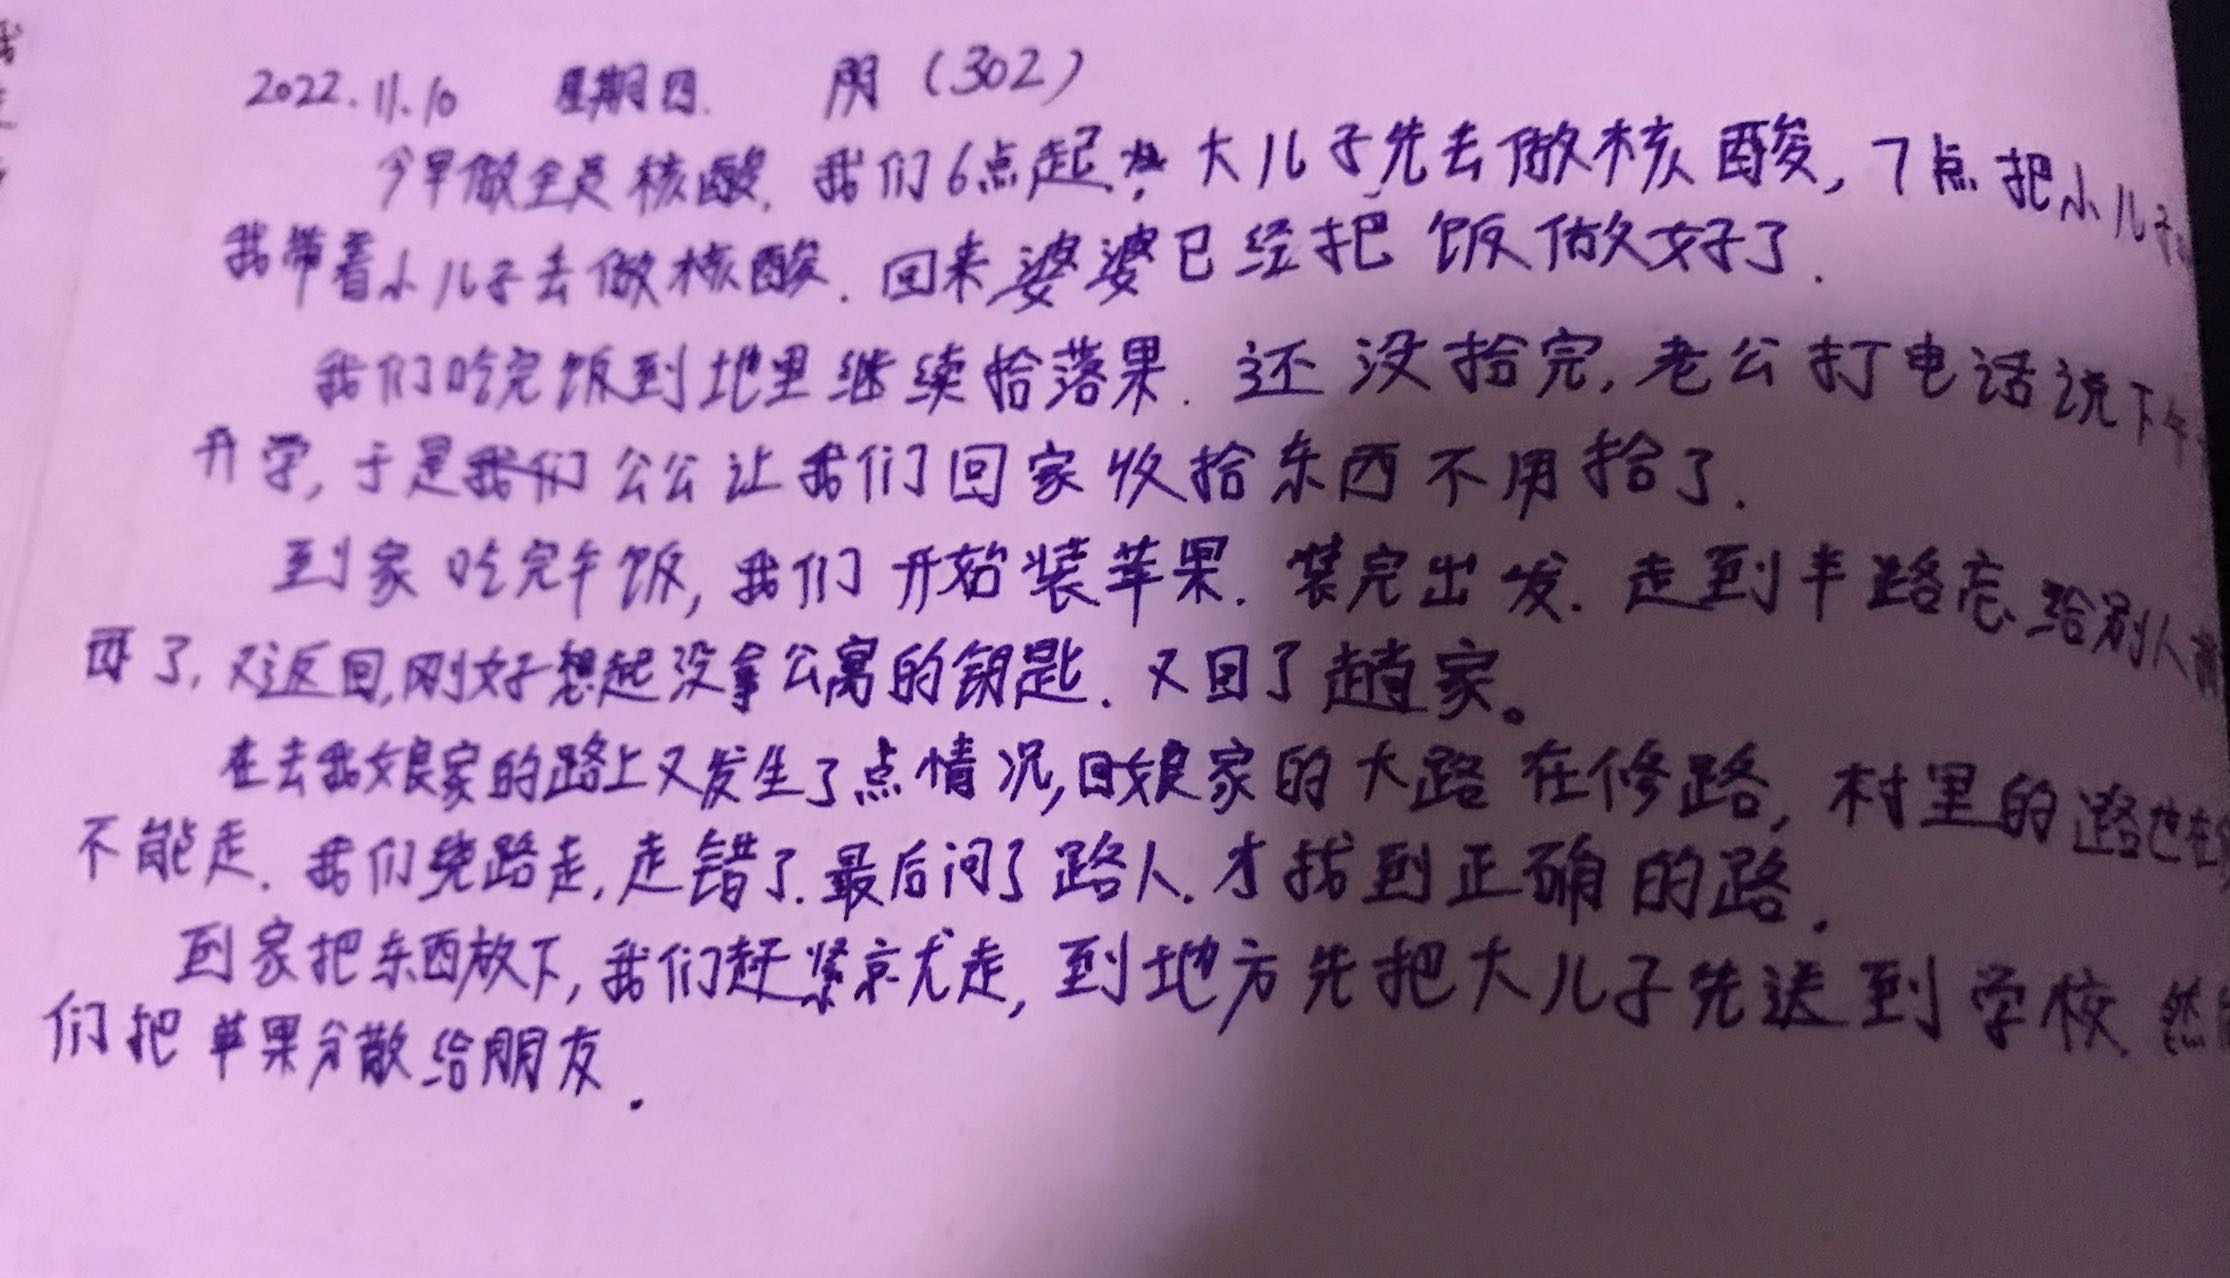 2022.11.10 星期四. 阴（302）
今早做全员核酸. 我们6点起, 大儿子先去做核酸, 7点把小儿子
我带着小儿子去做核酸. 回来婆婆已经把饭做好了.
我们吃完饭到地里继续拾落果. 还没拾完, 老公打电话说下午
开学, 于是我们公公让我们回家收拾东西不用拾了.
到家吃完午饭, 我们开始装苹果. 装完出发. 走到半路忘给别人
西了, 又返回, 刚好想起没拿公寓的钥匙. 又回了趟家。
在去我娘家的路上又发生了点情况, 回娘家的大路在修路, 村里的路也在
不能走. 我们绕路走, 走错了. 最后问了路人. 才找到正确的路.
到家把东西放下, 我们赶紧就走, 到地方先把大儿子先送到学校. 然
们把苹果分散给朋友.